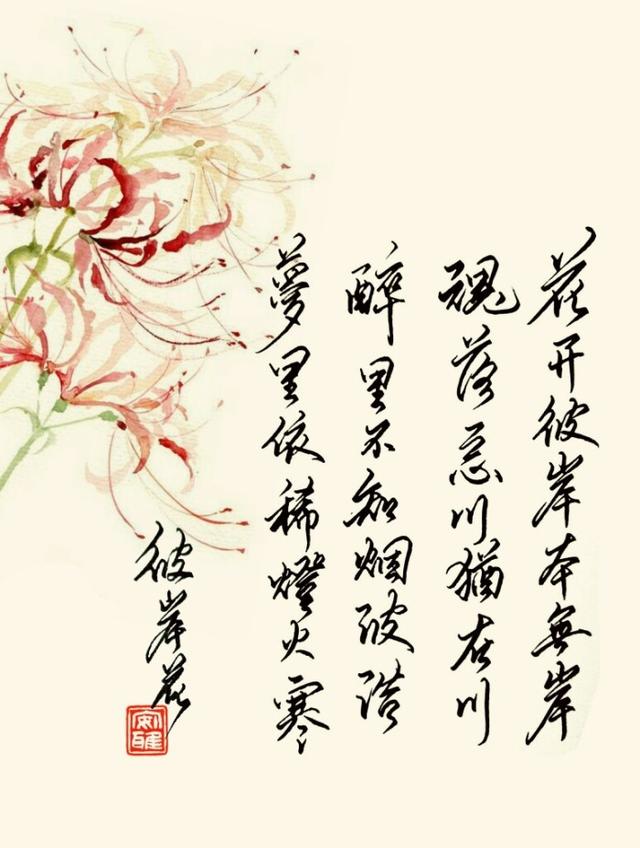 花开彼岸本無岸
魂落忘川猶在川
醉里不知烟波浩
夢里依稀燈火寒
彼岸花